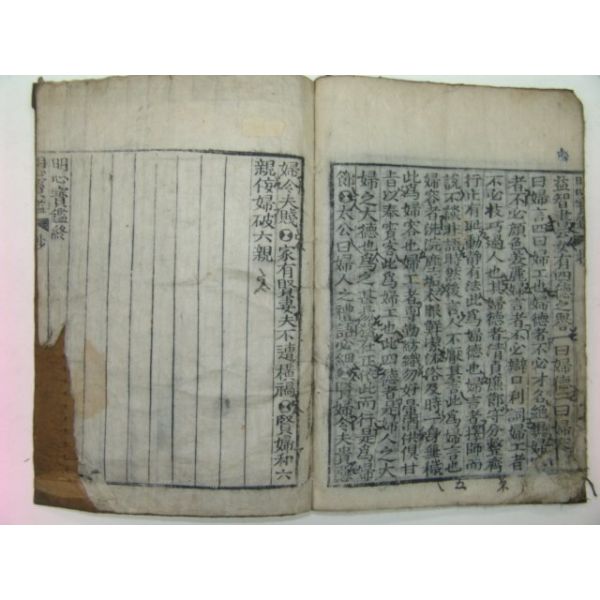 益智書云女有四德之譽一曰婦德二曰婦容三
曰婦言四曰婦工也婦德者不必才名絶異婦容
者不必顔色美麗婦言者不必辯口利詞婦工者
不必技巧過人也其婦德者清貞廉節守分整齊
行止有恥動静有法此爲婦德也婦言者擇師而
說不談非禮時然後言人不厭其言此爲婦言也
婦容者洗浣塵垢衣服鮮潔沐浴及時一身無穢
此爲婦容也婦工者專勤紡織勿好暈酒供俱甘
旨以奉賓客此爲婦工也此四德者是婦人之大
婦之大德也爲之甚易務之在正依此而行是爲婦
節太公曰婦人之禮語必細賢婦令夫貴惡
婦令夫賤家有賢妻夫不遭橫禍賢婦和六
親佞婦破六親
明心寶鑑終